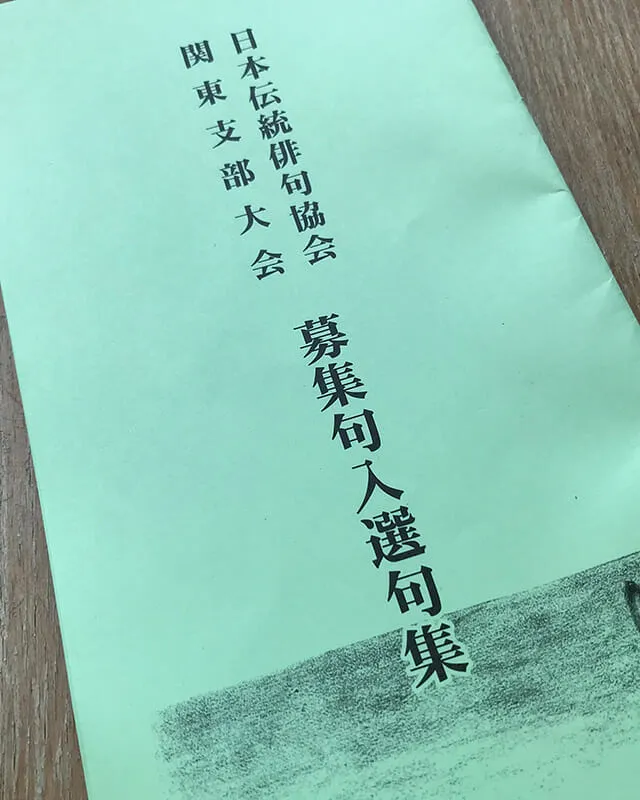 日本伝統俳句協会
関東支部大会
募集句入選句集